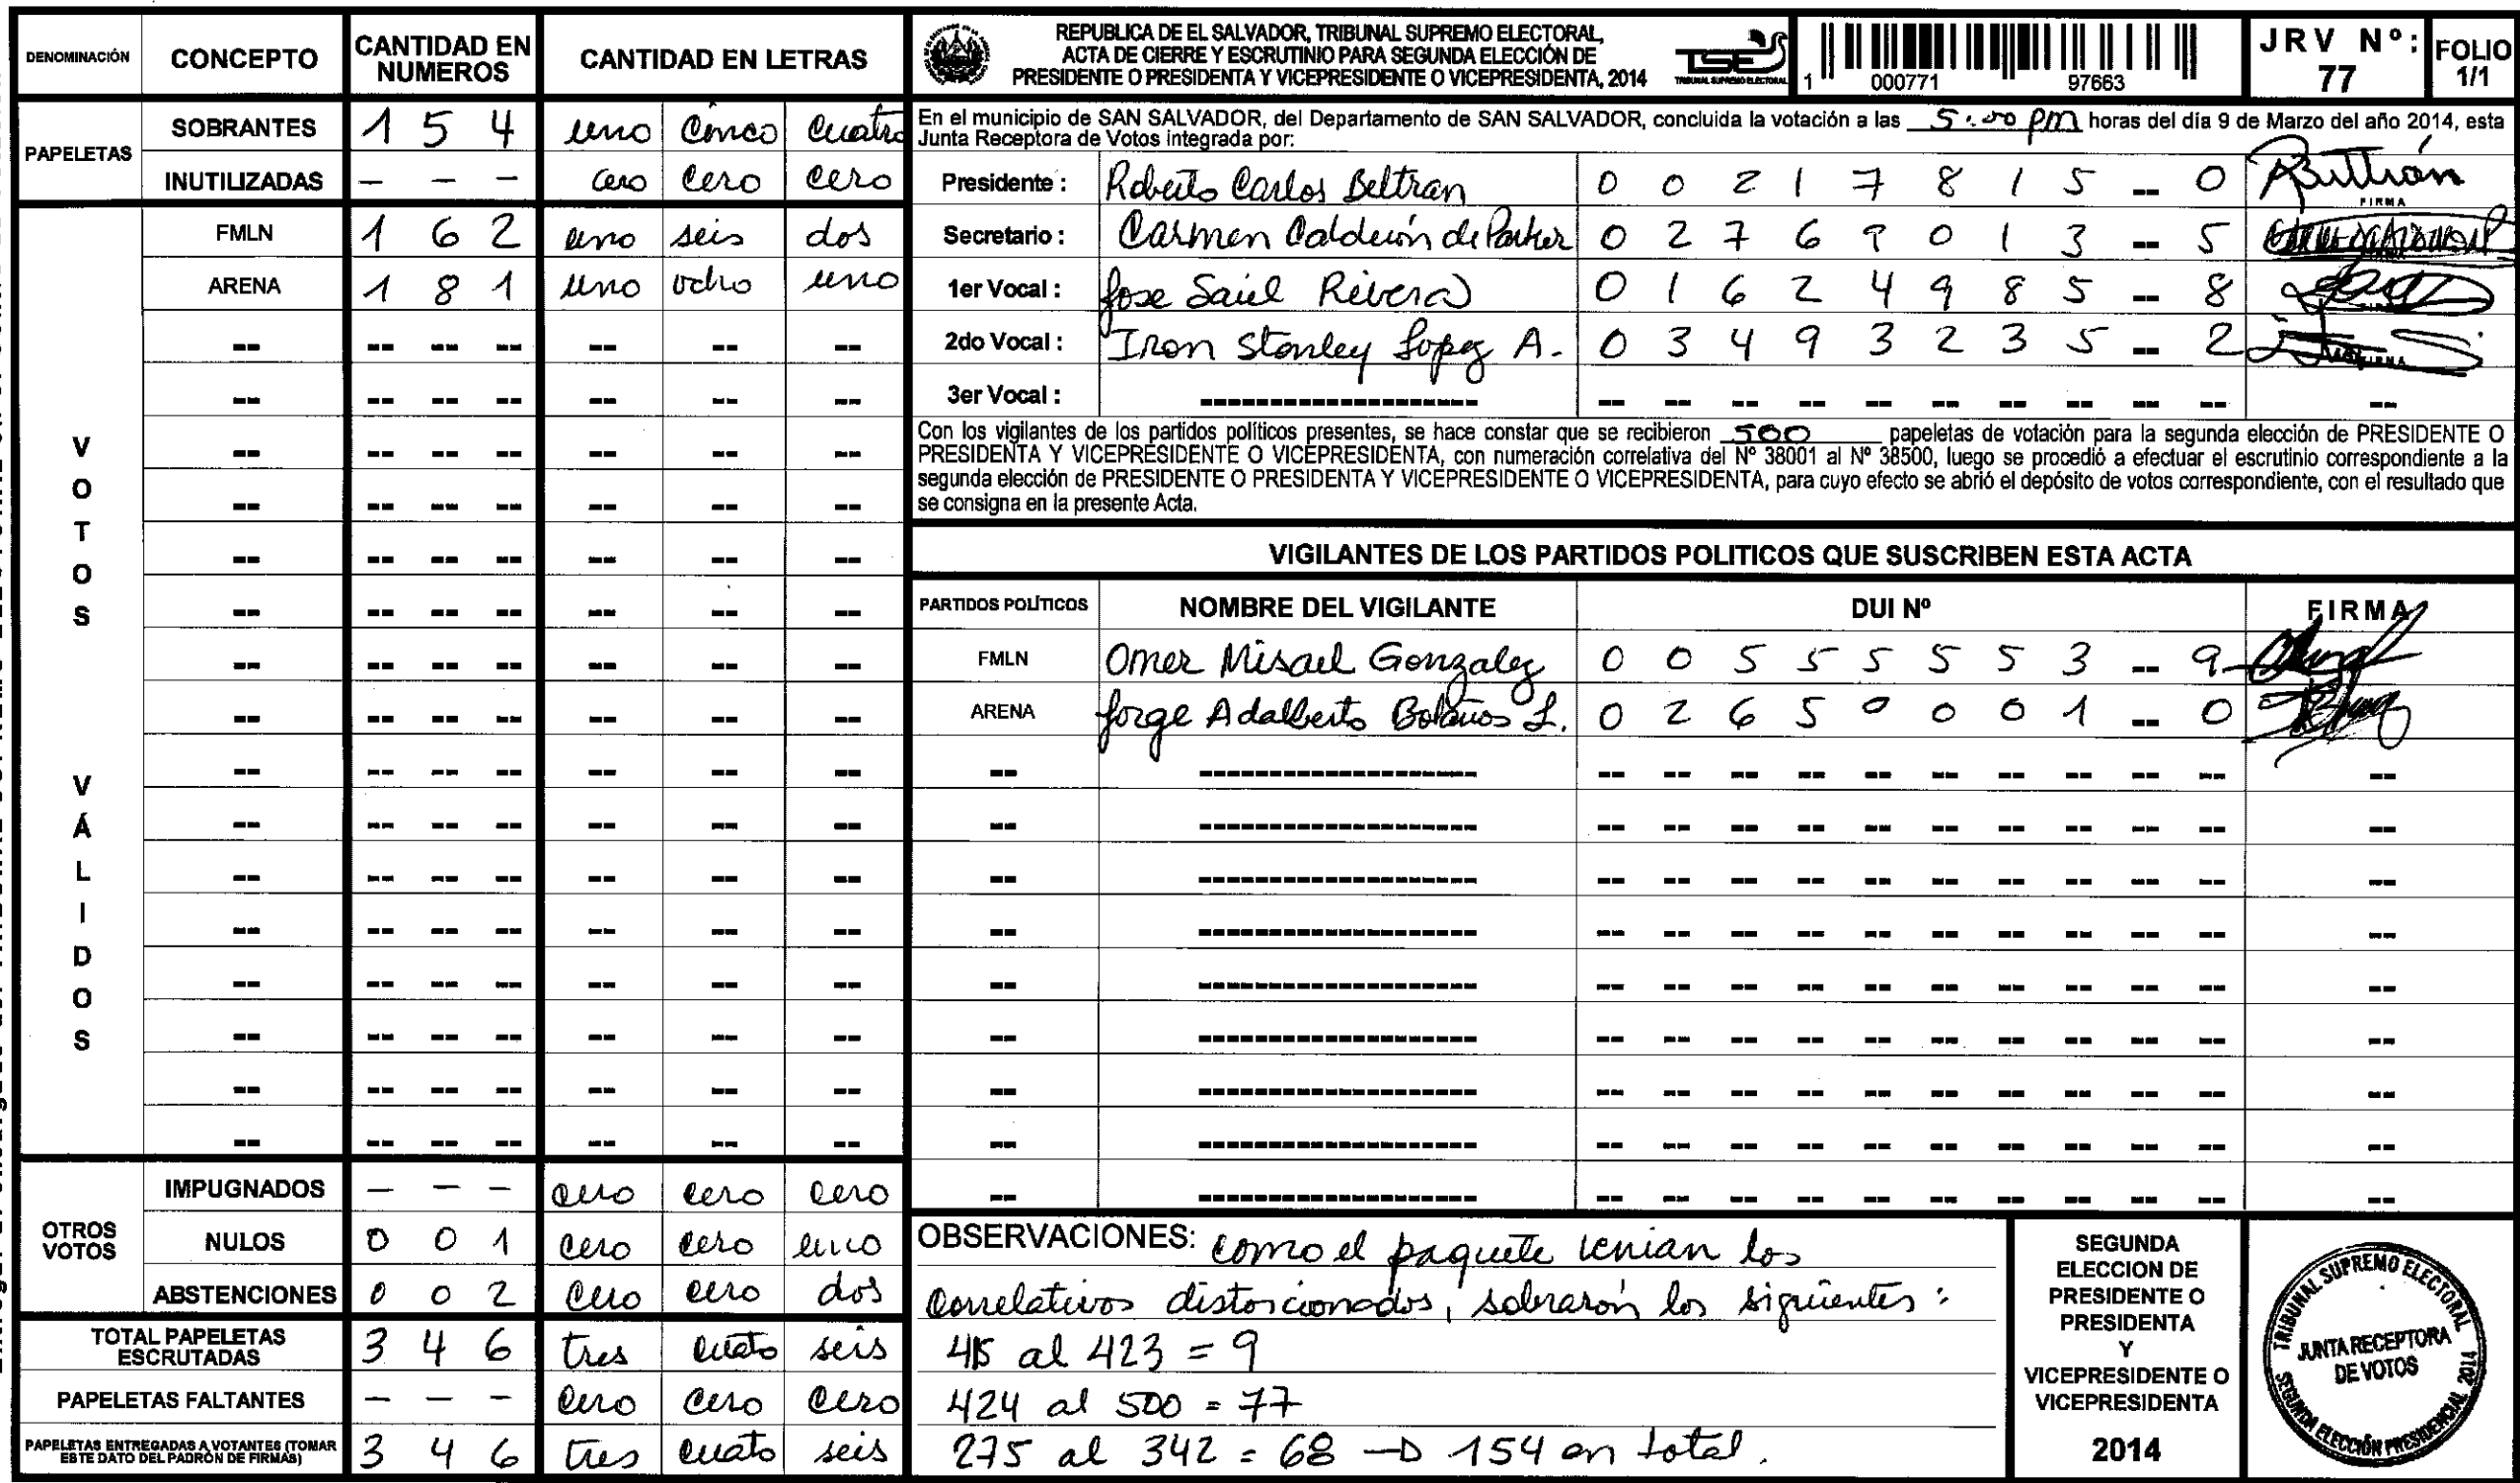 DENOMINACIÓN CONCEPTO CANTIDAD EN NUMEROS CANTIDAD EN LETRAS
PAPELETAS
SOBRANTES 1 5 4 uno cinco cuatro
INUTILIZADAS — — — cero cero cero
VOTOS VÁLIDOS
FMLN 1 6 2 uno seis dos
ARENA 1 8 1 uno ocho uno
OTROS VOTOS
IMPUGNADOS — — — cero cero cero
NULOS 0 0 1 cero cero uno
ABSTENCIONES 0 0 2 cero cero dos
TOTAL PAPELETAS ESCRUTADAS 3 4 6 tres cuato seis
PAPELETAS FALTANTES — — — cero cero cero
PAPELETAS ENTREGADAS A VOTANTES (TOMAR ESTE DATO DEL PADRÓN DE FIRMAS) 3 4 6 tres cuato seis
REPUBLICA DE EL SALVADOR, TRIBUNAL SUPREMO ELECTORAL,
ACTA DE CIERRE Y ESCRUTINIO PARA SEGUNDA ELECCIÓN DE
PRESIDENTE O PRESIDENTA Y VICEPRESIDENTE O VICEPRESIDENTA, 2014
TSE
TRIBUNAL SUPREMO ELECTORAL
1 000771 97663
JRV Nº: 77
FOLIO 1/1
En el municipio de SAN SALVADOR, del Departamento de SAN SALVADOR, concluida la votación a las 5:00 pm horas del día 9 de Marzo del año 2014, esta
Junta Receptora de Votos integrada por:
Presidente : Roberto Carlos Beltran 0 0 2 1 7 8 1 5 -- 0 FIRMA
Secretario : Carmen Calderón de Parker 0 2 7 6 9 0 1 3 -- 5
1er Vocal : Jose Saúl Rivera 0 1 6 2 4 9 8 5 -- 8
2do Vocal : Iron Stanley Lopez A. 0 3 4 9 3 2 3 5 -- 2 FIRMA
3er Vocal :
Con los vigilantes de los partidos políticos presentes, se hace constar que se recibieron 500 papeletas de votación para la segunda elección de PRESIDENTE O
PRESIDENTA Y VICEPRESIDENTE O VICEPRESIDENTA, con numeración correlativa del Nº 38001 al Nº 38500, luego se procedió a efectuar el escrutinio correspondiente a la
segunda elección de PRESIDENTE O PRESIDENTA Y VICEPRESIDENTE O VICEPRESIDENTA, para cuyo efecto se abrió el depósito de votos correspondiente, con el resultado que
se consigna en la presente Acta.
VIGILANTES DE LOS PARTIDOS POLITICOS QUE SUSCRIBEN ESTA ACTA
PARTIDOS POLÍTICOS NOMBRE DEL VIGILANTE DUI Nº FIRMA
FMLN Omer Misael Gonzalez 0 0 5 5 5 5 5 3 -- 9
ARENA Jorge Adalberto Bolaños L. 0 2 6 5 0 0 0 1 -- 0
OBSERVACIONES: como el paquete venian los
correlativos distorcionados, sobrarón los siguientes:
415 al 423 = 9
424 al 500 = 77
275 al 342 = 68 → 154 en total.
SEGUNDA
ELECCION DE
PRESIDENTE O
PRESIDENTA
Y
VICEPRESIDENTE O
VICEPRESIDENTA
2014
TRIBUNAL SUPREMO ELECTORAL
JUNTA RECEPTORA
DE VOTOS
SEGUNDA ELECCIÓN PRESIDENCIAL 2014